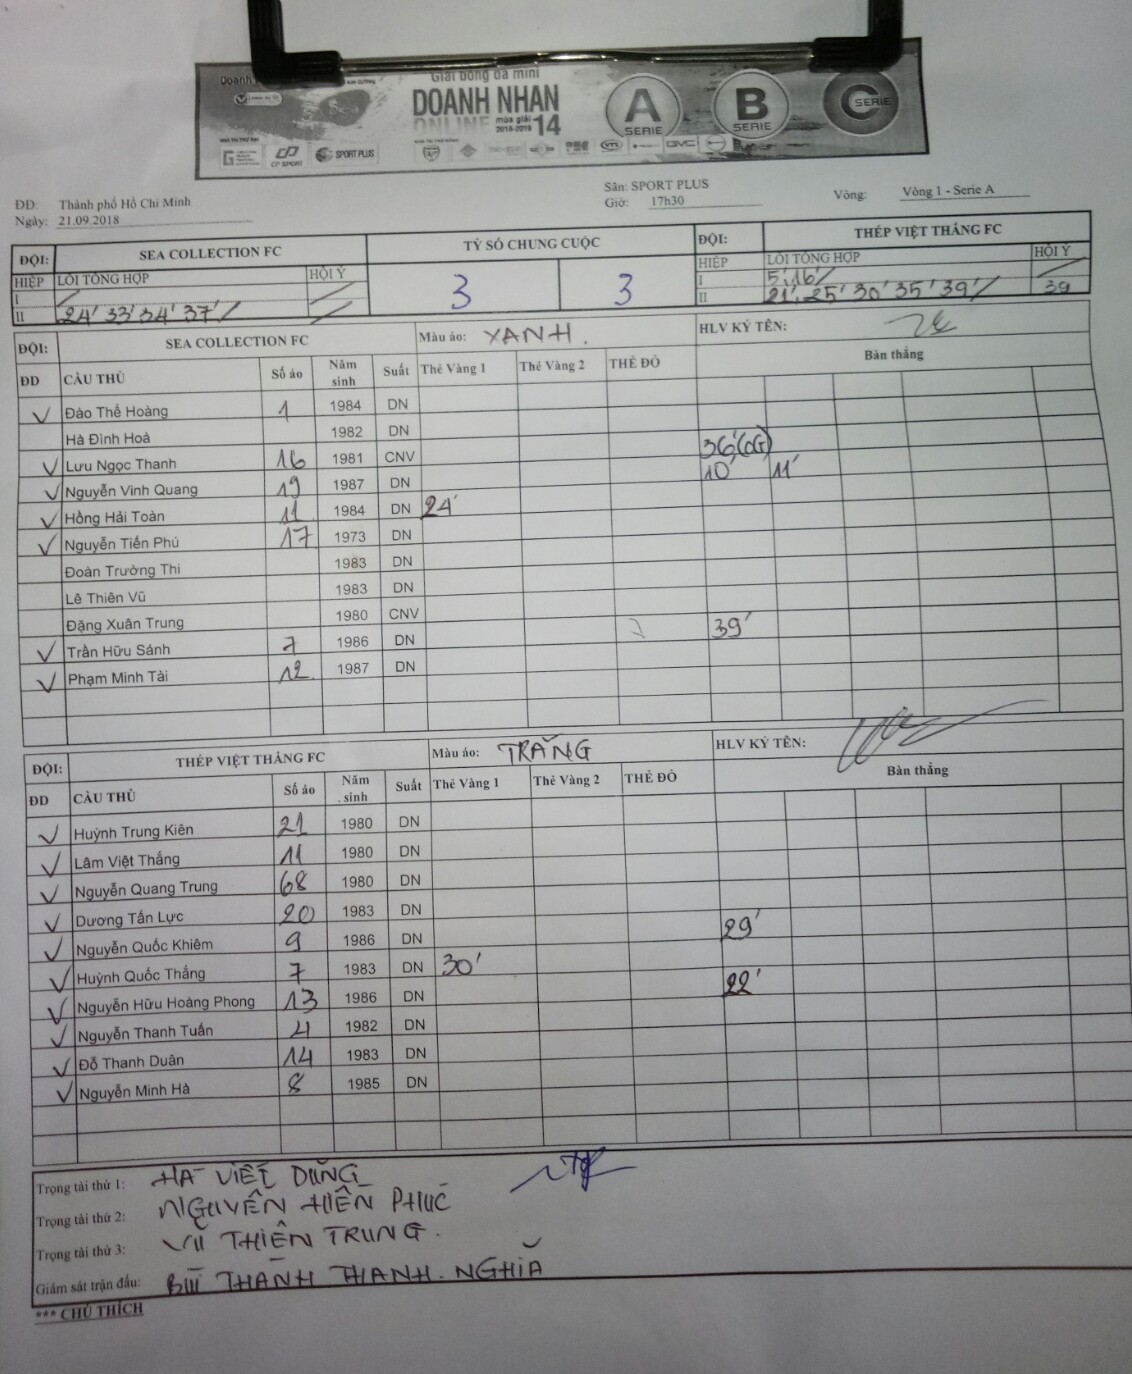 Doanh
Giải bóng đá mini
DOANH NHÂN
ONLINE mùa giải 2018-2019 14
A SERIE
B SERIE
C SERIE
CP SPORT
SPORT PLUS
VTL
GMC
ĐĐ: Thành phố Hồ Chí Minh Sân: SPORT PLUS
Ngày: 21.09.2018 Giờ: 17h30 Vòng: Vòng 1 - Serie A
ĐỘI: SEA COLLECTION FC TỶ SỐ CHUNG CUỘC ĐỘI: THÉP VIỆT THẮNG FC
HIỆP LỖI TỔNG HỢP HỘI Ý 3 3 HIỆP LỖI TỔNG HỢP HỘI Ý
I / / I 5' 16' / /
II 24' 33' 34' 37' / / II 21' 25' 30' 35' 39' / 39
ĐỘI: SEA COLLECTION FC Màu áo: XANH. HLV KÝ TÊN:
ĐD CẦU THỦ Số áo Năm sinh Suất Thẻ Vàng 1 Thẻ Vàng 2 THẺ ĐỎ Bàn thắng
✓ Đào Thế Hoàng 1 1984 DN
Hà Đình Hoà 1982 DN
✓ Lưu Ngọc Thanh 16 1981 CNV 36' (OG)
✓ Nguyễn Vinh Quang 19 1987 DN 10' 11'
✓ Hồng Hải Toàn 11 1984 DN 24'
✓ Nguyễn Tiến Phú 17 1973 DN
Đoàn Trường Thi 1983 DN
Lê Thiên Vũ 1983 DN
Đặng Xuân Trung 1980 CNV
✓ Trần Hữu Sánh 7 1986 DN 39'
✓ Phạm Minh Tài 12 1987 DN
ĐỘI: THÉP VIỆT THẮNG FC Màu áo: TRẮNG HLV KÝ TÊN:
ĐD CẦU THỦ Số áo Năm sinh Suất Thẻ Vàng 1 Thẻ Vàng 2 THẺ ĐỎ Bàn thắng
✓ Huỳnh Trung Kiên 21 1980 DN
✓ Lâm Việt Thắng 11 1980 DN
✓ Nguyễn Quang Trung 68 1980 DN
✓ Dương Tấn Lực 20 1983 DN
✓ Nguyễn Quốc Khiêm 9 1986 DN 29'
✓ Huỳnh Quốc Thắng 7 1983 DN 30'
✓ Nguyễn Hữu Hoàng Phong 13 1986 DN 22'
✓ Nguyễn Thanh Tuấn 4 1982 DN
✓ Đỗ Thanh Duân 14 1983 DN
✓ Nguyễn Minh Hà 8 1985 DN
Trọng tài thứ 1: HÀ VIẾT DŨNG
Trọng tài thứ 2: NGUYỄN HIỀN PHÚC
Trọng tài thứ 3: VŨ THIÊN TRUNG.
Giám sát trận đấu: BÙI THÀNH THANH. NGHĨA
*** CHÚ THÍCH